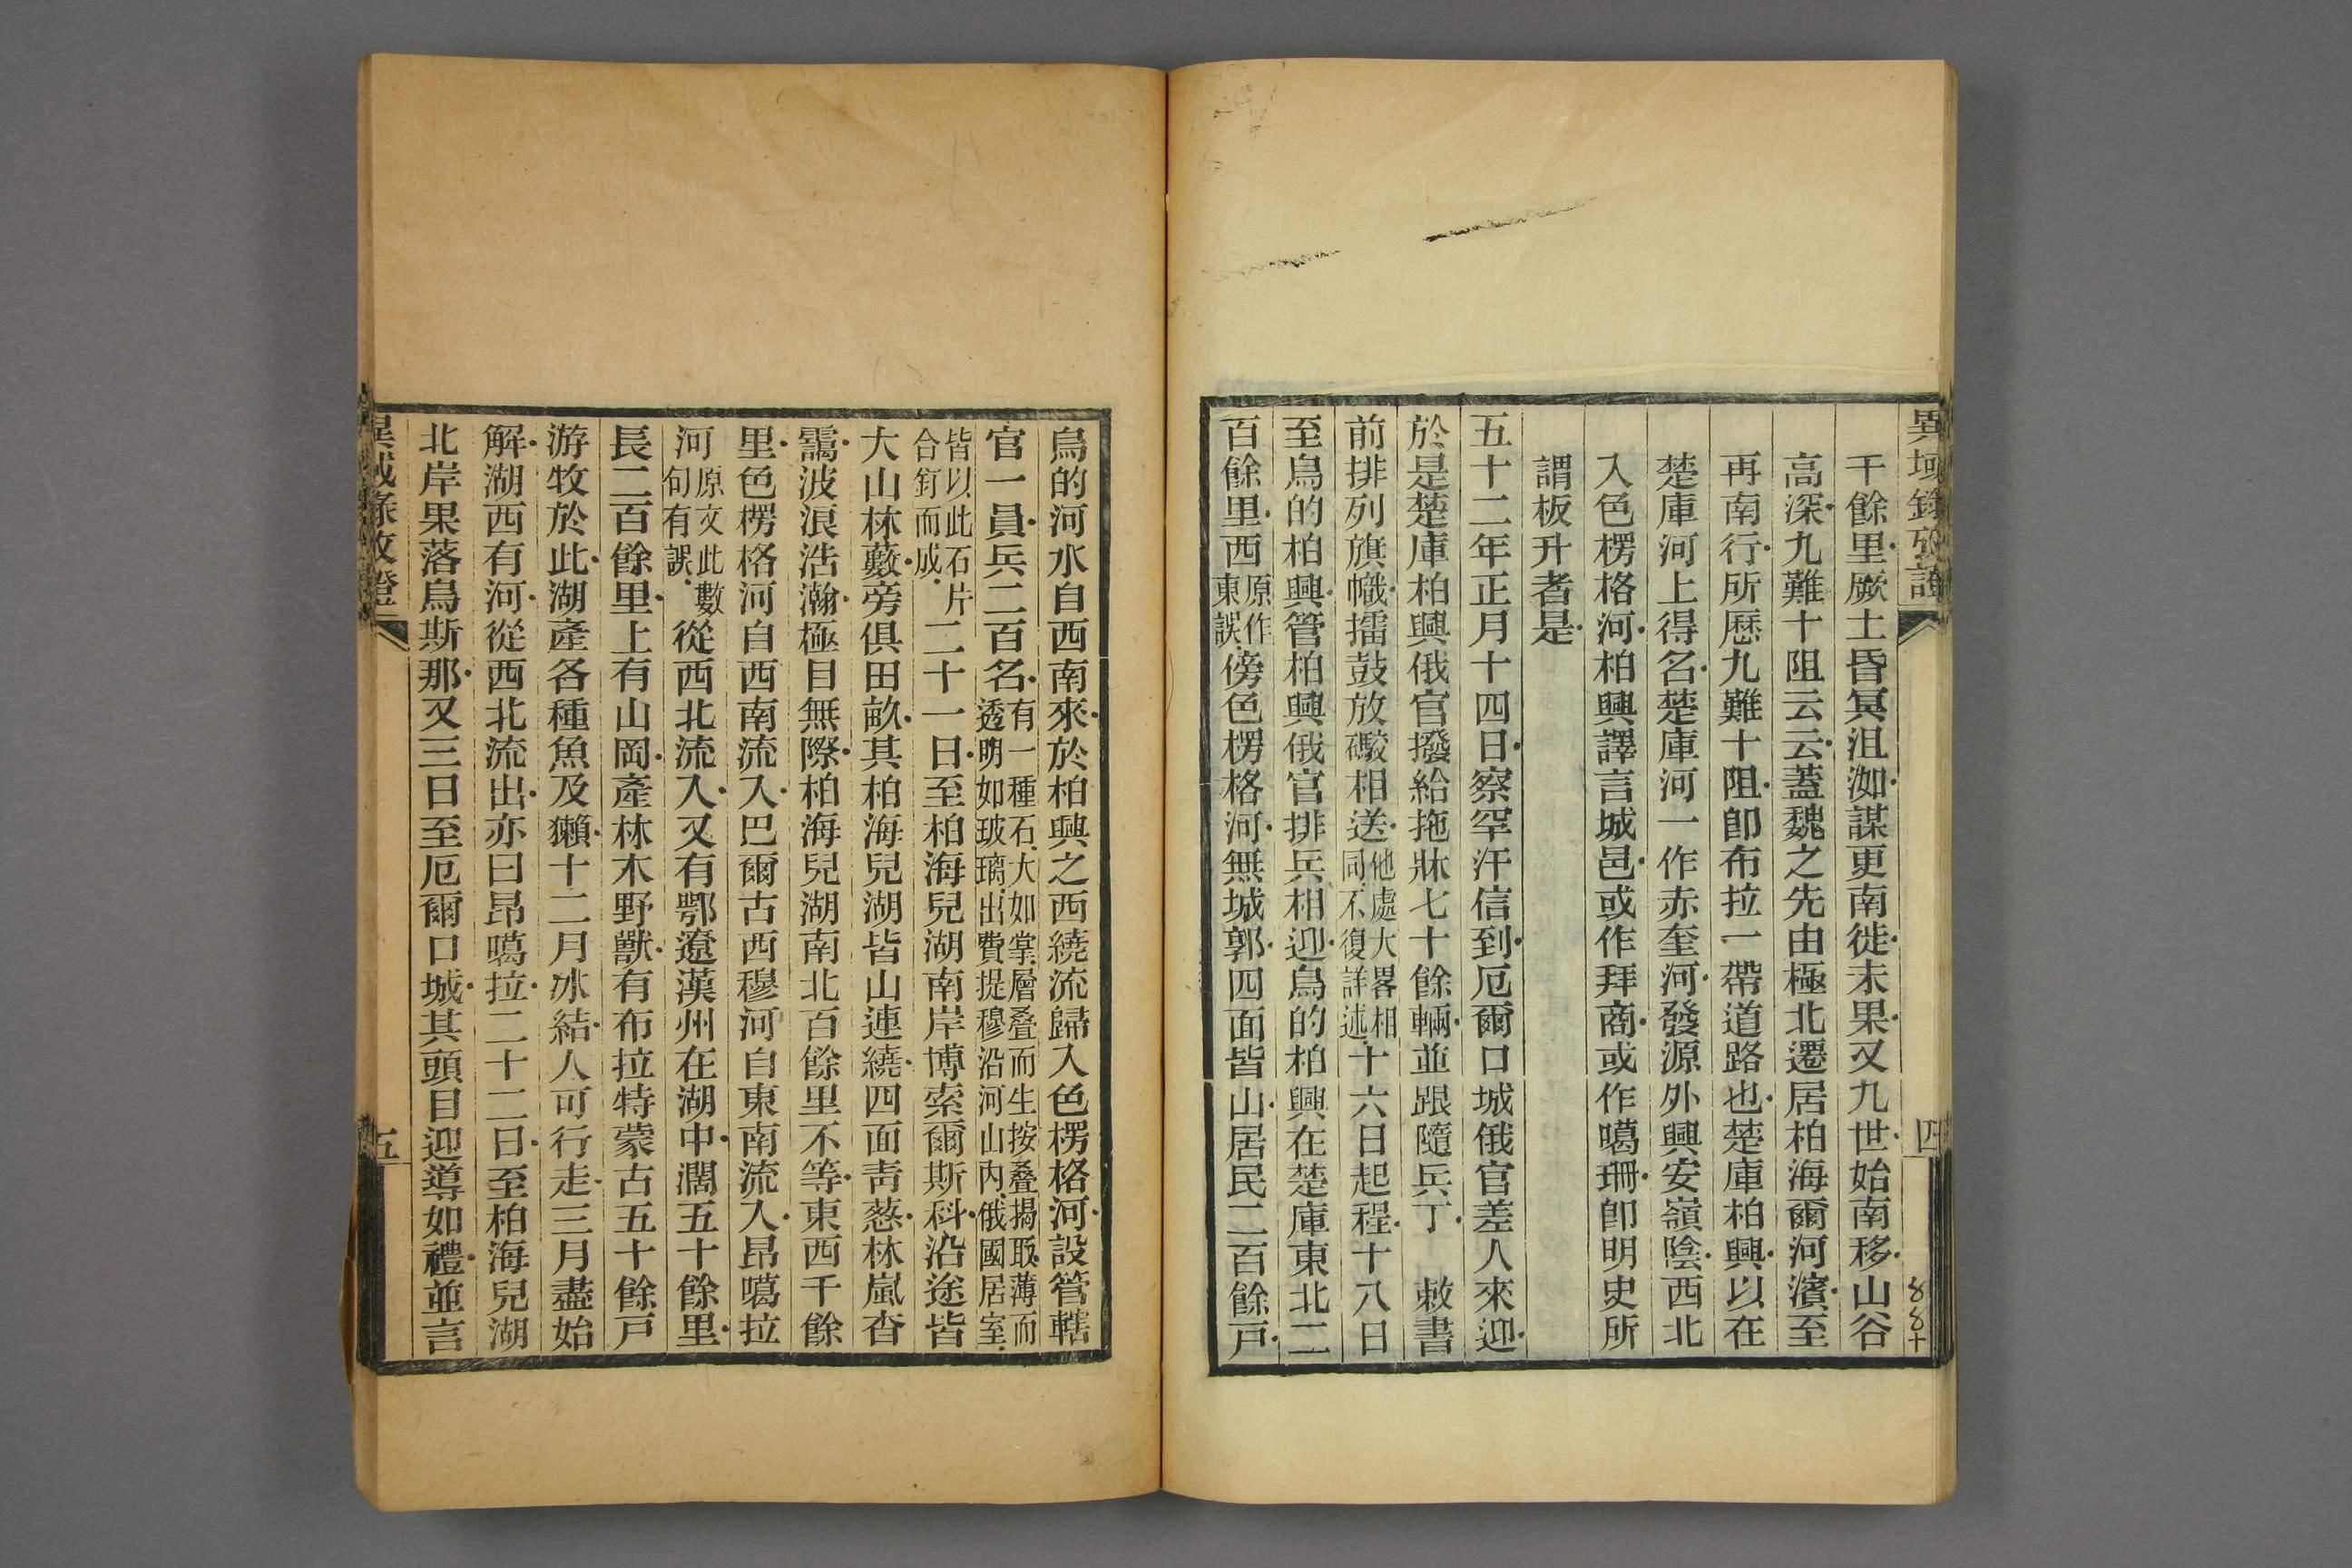 異域錄攷證
四
千餘里厥土昏冥沮洳謀更南徙未果又九世始南移山谷
高深九難十阻云云蓋魏之先由極北遷居柏海爾河濱至
再南行所歷九難十阻卽布拉一帶道路也楚庫柏興以在
楚庫河上得名楚庫河一作赤奎河發源外興安嶺陰西北
入色楞格河柏興譯言城邑或作拜商或作噶珊卽明史所
謂板升者是
五十二年正月十四日察罕汗信到厄爾口城俄官差人來迎
於是楚庫柏興俄官撥給拖牀七十餘輛並跟隨兵丁　敕書
前排列旗幟擂鼓放礮相送他處大畧相同不復詳述十六日起程十八日
至烏的柏興管柏興俄官排兵相迎烏的柏興在楚庫東北二
百餘里西原作東誤傍色楞格河無城郭四面皆山居民二百餘戸
烏的河水自西南來於柏興之西繞流歸入色楞格河設管轄
官一員兵二百名有一種石大如掌層叠而生按叠揭取薄而透明如玻璃出費提穆沿河山內俄國居室
皆以此石片合釘而成二十一日至柏海兒湖南岸博索爾斯科沿途皆
大山林藪旁俱田畝其柏海兒湖皆山連繞四面靑葱林嵐杳
靄波浪浩瀚極目無際柏海兒湖南北百餘里不等東西千餘
里色楞格河自西南流入巴爾古西穆河自東南流入昂噶拉
河原文此數句有誤從西北流入又有鄂遼漢州在湖中濶五十餘里
長二百餘里上有山岡產林木野獸有布拉特蒙古五十餘戸
游牧於此湖產各種魚及獺十二月冰結人可行走三月盡始
解湖西有河從西北流出亦曰昂噶拉二十二日至柏海兒湖
北岸果落烏斯那又三日至厄爾口城其頭目迎導如禮並言
異域錄攷證
五